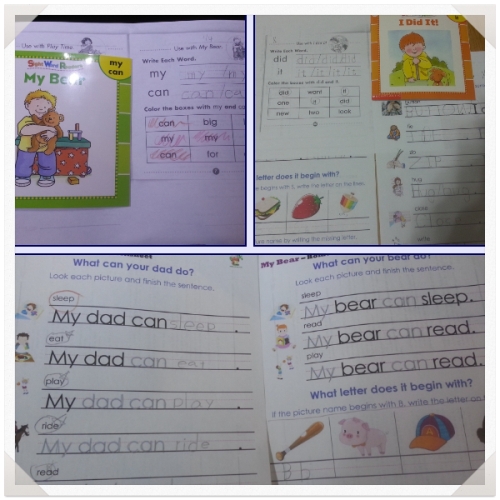 Use with Play Time
Sight Word Readers
My Bear
my
can
Use with My Bear
Write Each Word.
my my m
can can ca
Color the boxes with my and ca
can big
my my
can for
I Did It!
Write Each Word.
did did did d
it
Color the boxes with did and it.
did want it
one it did
new two look
letter does it begin with?
ure name by writing the missing letter.
zip
What can your dad do?
Look each picture and finish the sentence.
sleep
My dad can sleep.
eat
My dad can eat.
play
My dad can play.
ride
My dad can ride.
read
My Bear
What can your bear do?
Look each picture and finish the sentence.
sleep
My bear can sleep.
read
My bear can read.
play
My bear can read.
What letter does it begin with?
If the picture name begins with B, write the letter on
B b